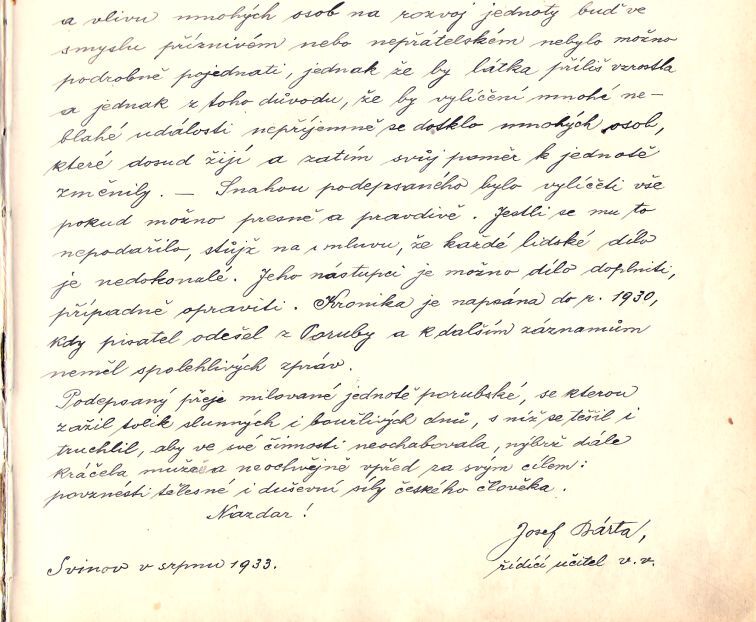 a vlivu mnohých osob na rozvoj jednoty buď ve
smyslu příznivém nebo nepřátelském nebylo možno
podrobně pojednati, jednak že by látka příliš vzrostla
a jednak z toho důvodu, že by vylíčení mnohé ne-
blahé události nepříjemně se dotklo mnohých osob,
které dosud žijí a zatím svůj poměr k jednotě
změnily. — Snahou podepsaného bylo vylíčeti vše
pokud možno presně a pravdivě. Jestli se mu to
nepodařilo, stůjž na omluvu, že každé lidské dílo
je nedokonalé. Jeho nástupci je možno dílo doplniti,
případně opraviti. Kronika je napsána do r. 1930,
kdy pisatel odešel z Poruby a k dalším záznamům
neměl spolehlivých zpráv.
Podepsaný přeje milované jednotě porubské, se kterou
zažil tolik slunných i bouřlivých dnů, s níž se těšil i
truchlil, aby ve své činnosti neochabovala, nýbrž dále
kráčela mužně a neochvějně vpřed za svým cílem:
povznésti tělesné i duševní síly českého člověka.
Nazdar!
Josef Bárta,
Svinov v srpnu 1933.
řídící učitel v.v.